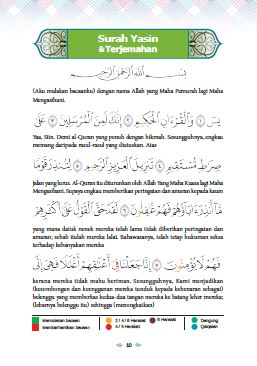 Surah Yasin
& Terjemahan
بِسْمِ اللَّهِ الرَّحْمَٰنِ الرَّحِيمِ
(Aku mulakan bacaanku) dengan nama Allah yang Maha Pemurah lagi Maha
Mengasihani.
يسٓ ۝١ وَٱلْقُرْءَانِ ٱلْحَكِيمِ ۝٢ إِنَّكَ لَمِنَ ٱلْمُرْسَلِينَ ۝٣ عَلَىٰ
Yaa, Siin. Demi al-Quran yang penuh dengan hikmah. Sesungguhnya, engkau
memang daripada rasul-rasul yang diutuskan. Atas
صِرَٰطٍ مُّسْتَقِيمٍ ۝٤ تَنزِيلَ ٱلْعَزِيزِ ٱلرَّحِيمِ ۝٥ لِتُنذِرَ قَوْمًا
jalan yang lurus. Al-Quran itu diturunkan oleh Allah Yang Maha Kuasa lagi Maha
Mengasihani. Supaya engkau memberikan peringatan dan amaran kepada kaum
مَّآ أُنذِرَ ءَابَآؤُهُمْ فَهُمْ غَٰفِلُونَ ۝٦ لَقَدْ حَقَّ ٱلْقَوْلُ عَلَىٰٓ أَكْثَرِهِمْ
yang mana datuk nenek mereka telah lama tidak diberikan peringatan dan
amaran; sebab itulah mereka lalai. Bahawasanya, telah tetap hukuman seksa
terhadap kebanyakan mereka
فَهُمْ لَا يُؤْمِنُونَ ۝٧ إِنَّا جَعَلْنَا فِىٓ أَعْنَٰقِهِمْ أَغْلَٰلًا فَهِىَ إِلَى
kerana mereka tidak mahu beriman. Sesungguhnya, Kami menjadikan
(kesombongan dan keengganan mereka tunduk kepada kebenaran sebagai)
belenggu yang memberkas kedua-dua tangan mereka ke batang leher mereka;
(lebarnya belenggu itu) sehingga (menongkatkan)
Memulakan bacaan 2 / 4 / 6 Harakat 6 Harakat Dengung
Memberhentikan bacaan 4 / 5 Harakat Qalqalah
10